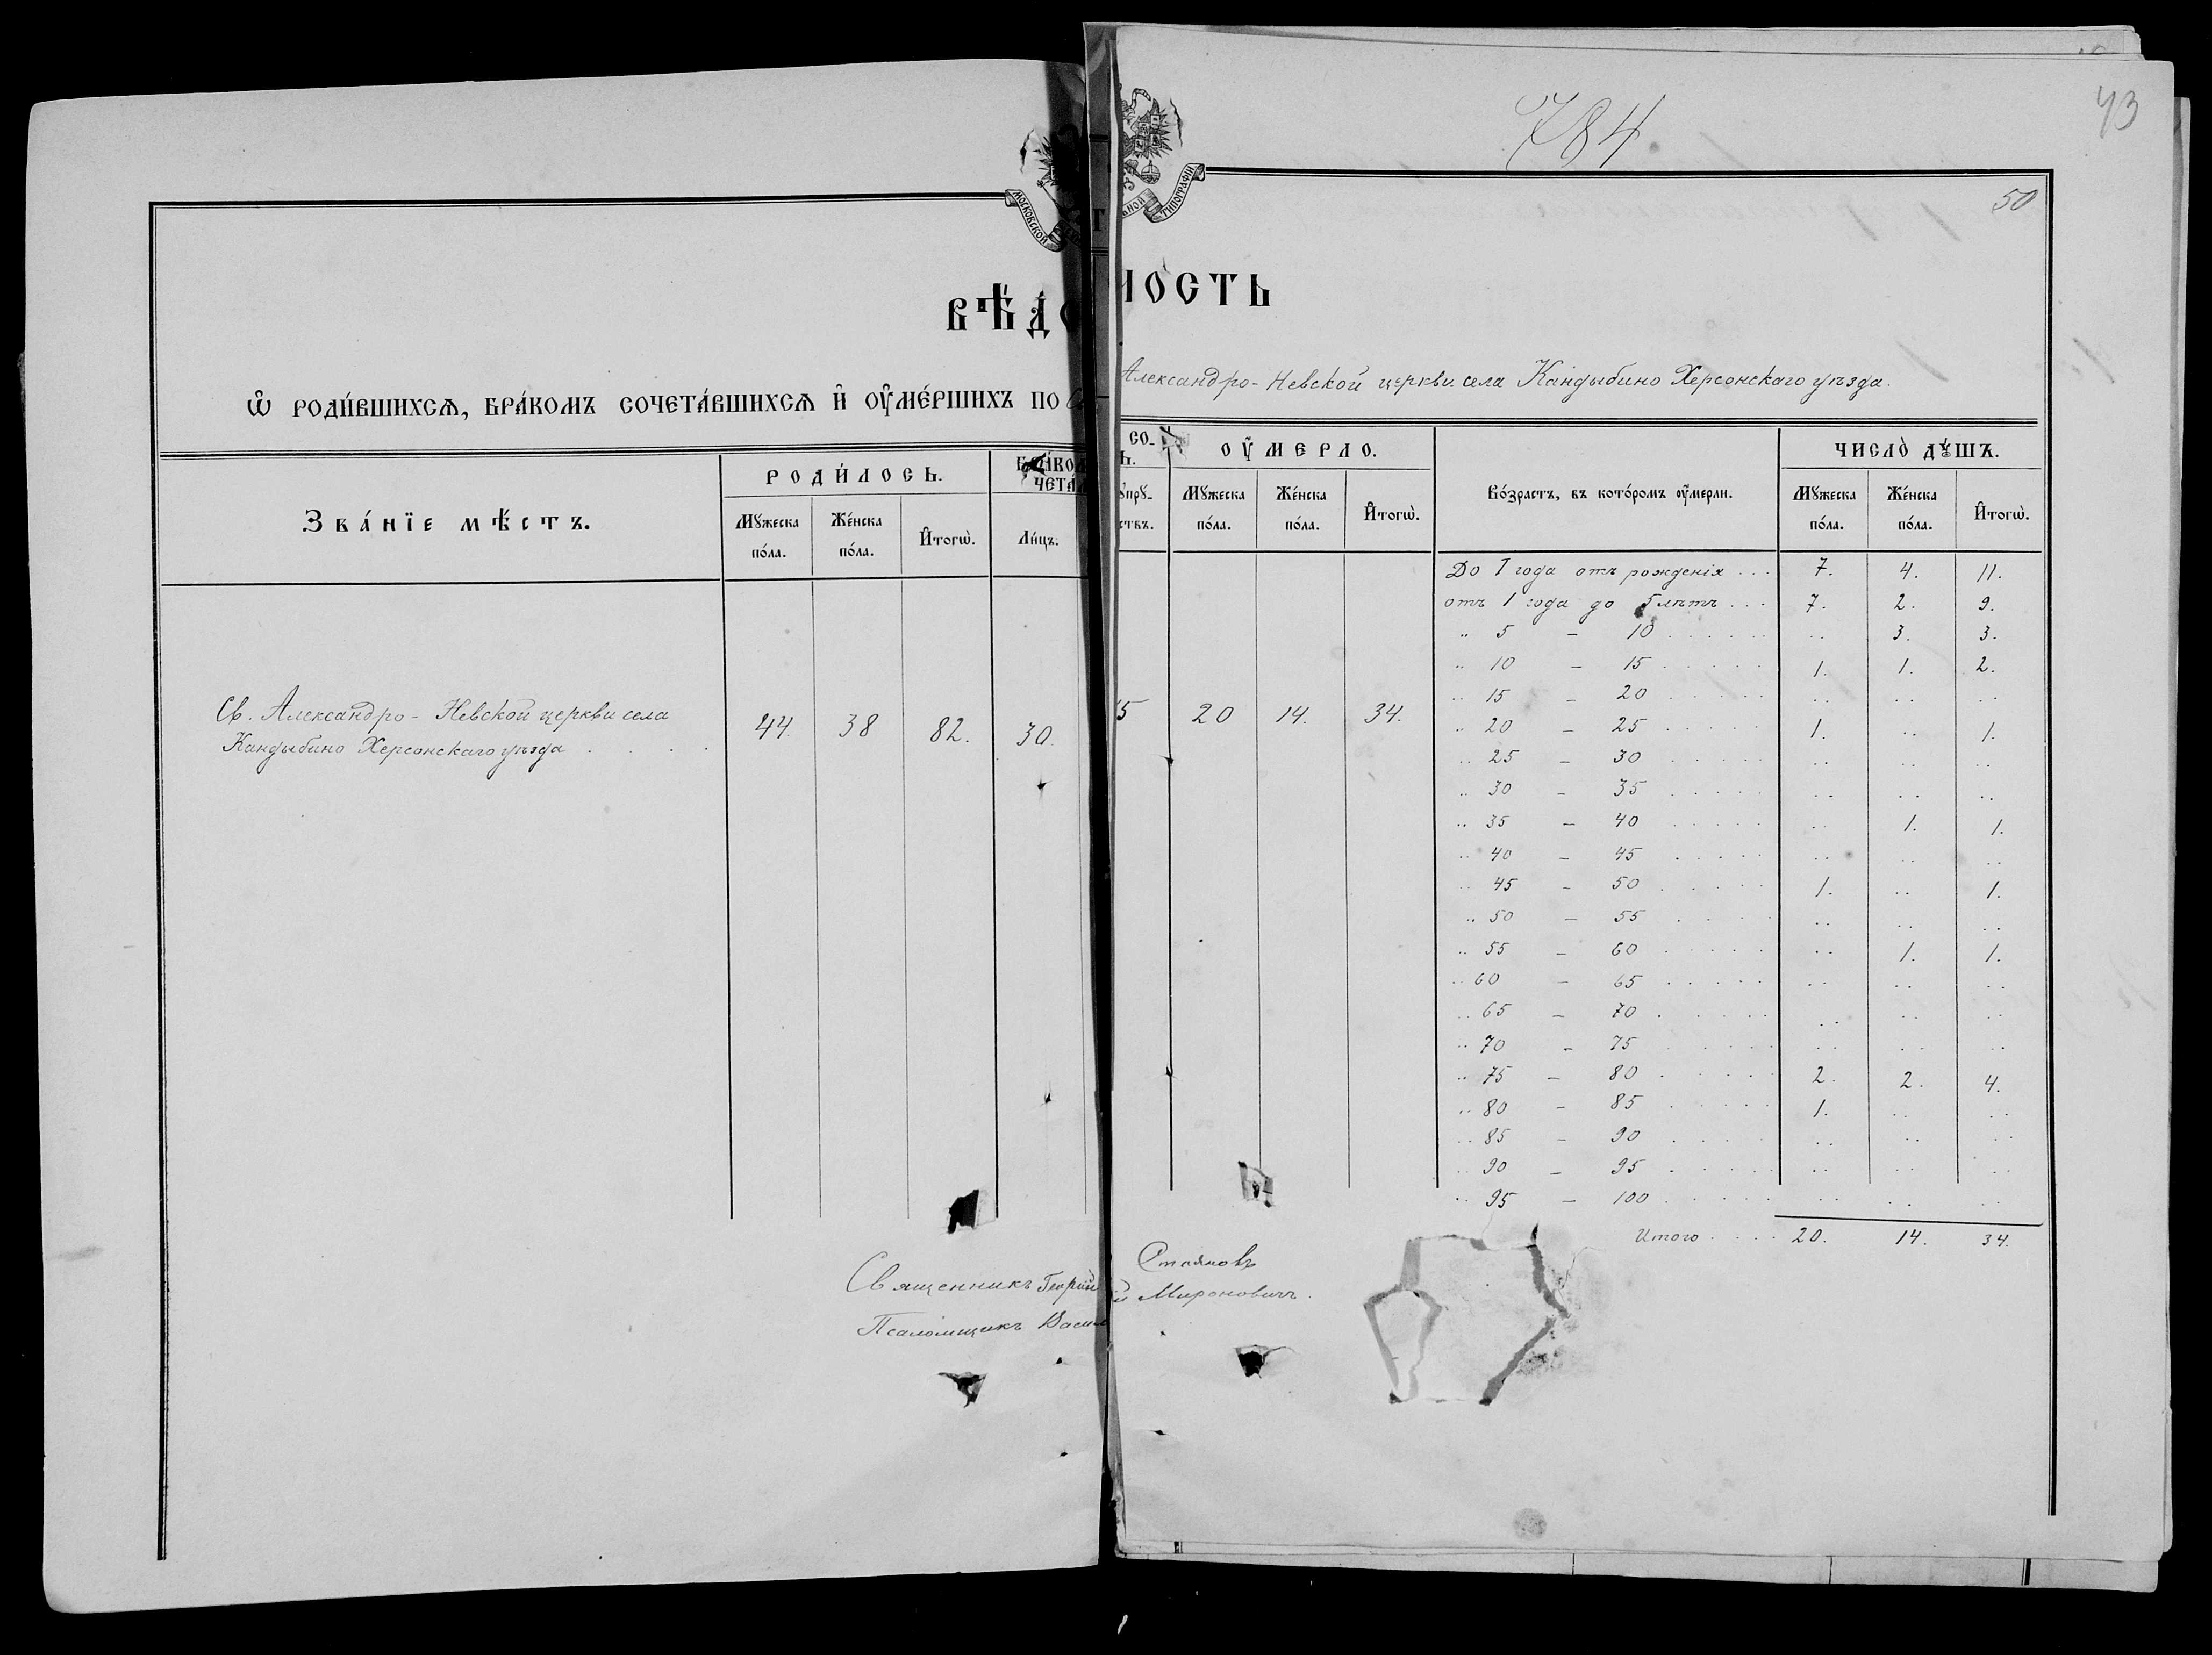 784
43
50
МОСКОВСКОЙ
ТИПОГРАФІИ
ВѢДО МОСТЬ
Ѡ РОДИ́ВШИХСѦ, БРА́КОМЪ СОЧЕТА́ВШИХСѦ И҆ ОУ҆МЕ́РШИХЪ ПО Св. Александро-Невской церкви села Кандыбино Херсонскаго уѣзда.
Зва́нїе мѣ́стъ.
РОДИ́ЛОСЬ.
Мꙋ́жеска по́ла.
Же́нска по́ла.
И҆тогѡ̀.
БРА́КОМ СО-
ЧЕТА́Л Ь.
Ли́цъ.
ꙋпрꙋ-
ствъ.
ОУ҆́МЕРЛО.
Мꙋ́жеска по́ла.
Же́нска по́ла.
И҆тогѡ̀.
Во́зрастъ, въ кото́ромъ оу҆́мерли.
ЧИСЛО̀ ДꙊ́ШЪ.
Мꙋ́жеска по́ла.
Же́нска по́ла.
И҆тогѡ̀.
Св. Александро-Невской церкви села
Кандыбино Херсонскаго уѣзда . . . .
44. 38 82. 30. 15 20 14. 34.
До 1 года отъ рожденія . . . 7. 4. 11.
отъ 1 года до 5 лѣтъ . . . 7. 2. 9.
„ 5 – 10 . . . . . . .. 3. 3.
„ 10 – 15 . . . . . 1. 1. 2.
„ 15 – 20 . . . . . .. .. .
„ 20 – 25 . . . . . 1. .. 1.
„ 25 – 30 . . . . . .. .. ..
„ 30 – 35 . . . . . .. .. ..
„ 35 – 40 . . . . . .. 1. 1.
„ 40 – 45 . . . . . .. .. ..
„ 45 – 50 . . . . . 1. .. 1.
„ 50 – 55 . . . . .. .. ..
„ 55 – 60 . . . . . .. 1. 1.
„ 60 – 65 . . . . . .. .. ..
„ 65 – 70 . . . . . .. .. ..
„ 70 – 75 . . . . . .. .. ..
„ 75 – 80 . . . . . 2. 2. 4.
„ 80 – 85 . . . . . 1. .. ..
„ 85 – 90 . . . . . .. .. ..
„ 90 – 95 . . . . . .. .. ..
„ 95 – 100 . . . . . .. .. ..
Итого . . . . 20. 14. 34.
Священникъ Георгій Стояновъ
Псаломщикъ Василій Мироновичъ.